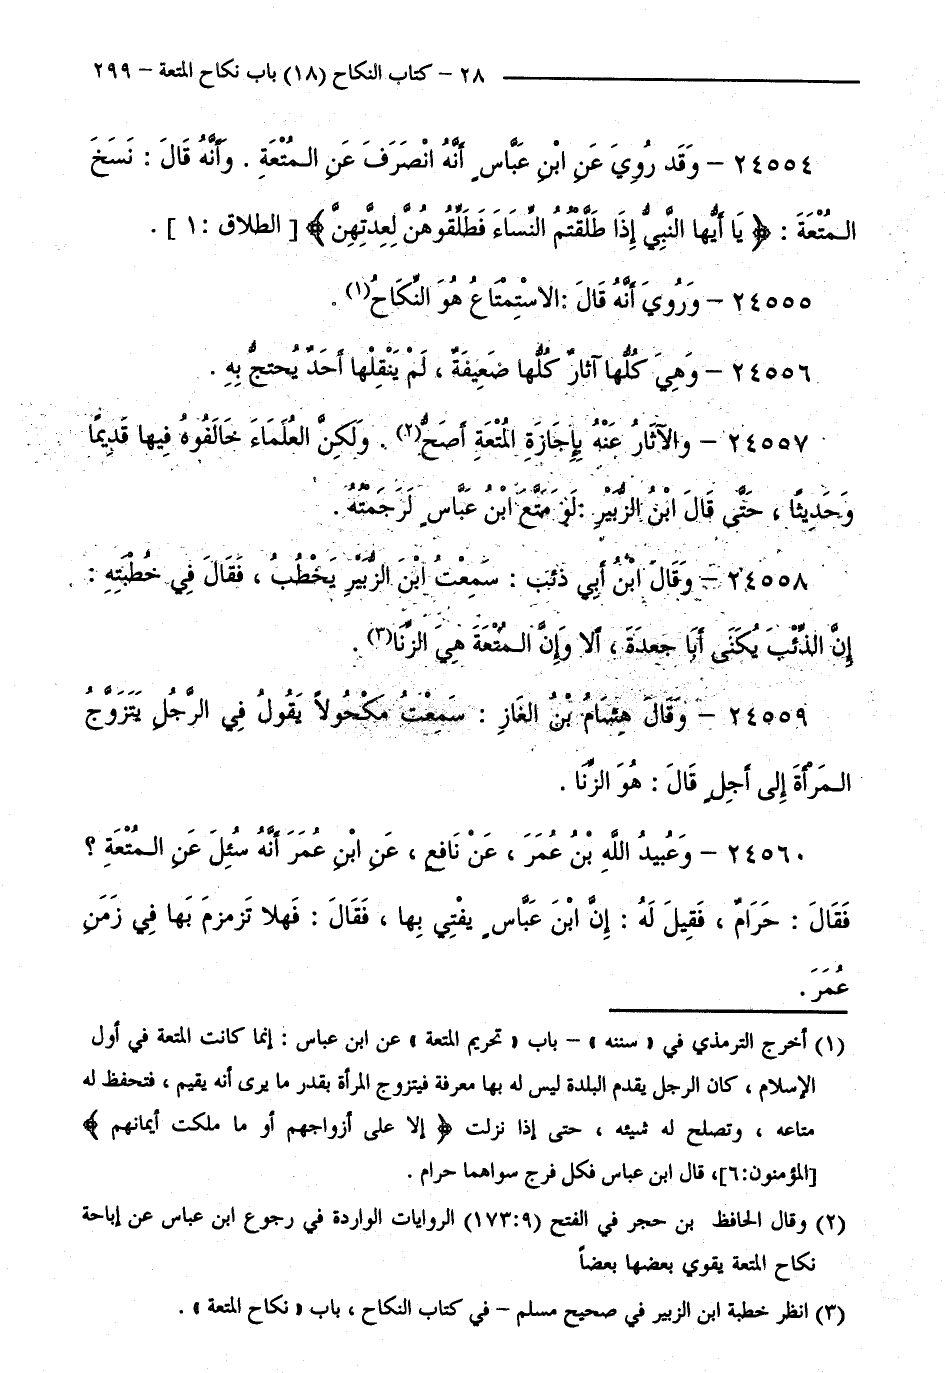 ٢٨ – كتاب النكاح (١٨) باب نكاح المتعة – ٢٩٩
٢٤٥٥٤ – وَقَد رُوِيَ عَنِ ابْنِ عَبَّاسٍ أَنَّهُ انْصَرَفَ عَنِ الـمُتْعَةِ . وَأَنَّهُ قَالَ : نَسَخَ
الـمُتْعَةَ : ﴿ يَا أَيُّها النَّبِيُّ إِذَا طَلَّقْتُمُ النِّسَاءَ فَطَلِّقُوهُنَّ لِعِدَّتِهِنَّ ﴾ [ الطلاق : ١ ] .
٢٤٥٥٥ – وَرُوِيَ أَنَّهُ قَالَ :الاسْتِمْتَاعُ هُوَ النِّكَاحُ(١) .
٢٤٥٥٦ – وَهِيَ كُلُّها آثارٌ كُلُّها ضَعِيفَةٌ ، لَمْ يَنْقِلْها أَحَدٌ يُحتجُّ بِهِ .
٢٤٥٥٧ – والآثَارُ عَنْهُ بِإِجَازَةِ المُتْعَةِ أَصَحُّ(٢) . وَلَكِنَّ العُلَمَاءَ خَالَفُوهُ فِيها قَدِيمًا
وَحَدِيثًا ، حَتَّى قَالَ ابْنُ الزُّبَيْرِ :لَوْ مَتَّعَ ابْنُ عَبَّاسٍ لَرَجَمْتُهُ .
٢٤٥٥٨ – وَقَالَ ابْنُ أَبِي ذئبٍ : سَمِعْتُ ابْنَ الزُّبَيْرِ يَخْطُبُ ، فَقَالَ فِي خُطْبَتِهِ :
إِنَّ الذِّئْبَ يُكَنَى أَبَا جَعدَةَ ، أَلا وَإِنَّ الـمُتْعَةَ هِيَ الزِّنَا(٣) .
٢٤٥٥٩ – وَقَالَ هِشَامُ بْنُ الغَازِ : سَمِعْتُ مَكْحُولاً يَقُولُ فِي الرَّجُلِ يَتَزَوَّجُ
الـمَرْأَةَ إِلى أَجلٍ قَالَ : هُوَ الزِّنَا .
٢٤٥٦٠ – وَعُبيدُ اللَّهِ بْنُ عُمَرَ ، عَنْ نَافعٍ ، عَنِ ابْنِ عُمَرَ أَنَّهُ سُئِلَ عَنِ الـمُتْعَةِ ؟
فَقَالَ : حَرَامٌ ، فَقِيلَ لَهُ : إِنَّ ابْنَ عَبَّاسٍ يفْتِي بِها ، فَقَالَ : فَهلا تَزمزمَ بَها فِي زَمَنِ
عُمَرَ .
(١) أخرج الترمذي في « سننه » – باب « تحريم المتعة » عن ابن عباس : إنما كانت المتعة في أول
الإسلام ، كان الرجل يقدم البلدة ليس له بها معرفة فيتزوج المرأة بقدر ما يرى أنه يقيم ، فتحفظ له
متاعه ، وتصلح له شيئه ، حتى إذا نزلت ﴿ إلا على أزواجهم أو ما ملكت أيمانهم ﴾
[المؤمنون:٦]، قال ابن عباس فكل فرج سواهما حرام .
(٢) وقال الحافظ بن حجر في الفتح (١٧٣:٩) الروايات الواردة في رجوع ابن عباس عن إباحة
نكاح المتعة يقوي بعضها بعضاً
(٣) انظر خطبة ابن الزبير في صحيح مسلم – في كتاب النكاح ، باب « نكاح المتعة » .